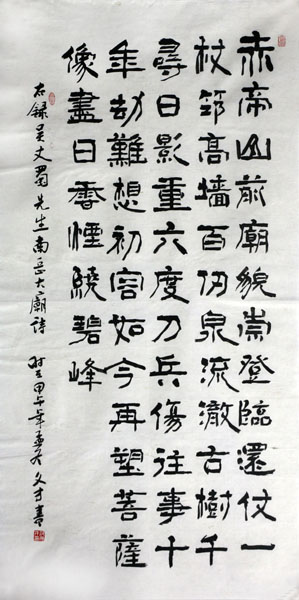 赤帝山前廟貌崇登臨還仗一
杖筇高墻百仞泉流澈古樹千
尋日影重六度刀兵傷往事十
年劫難想初容如今再塑菩薩
像盡日香煙繞碧峰
右録吴丈蜀先生南岳大廟詩 甲午年孟冬文才書